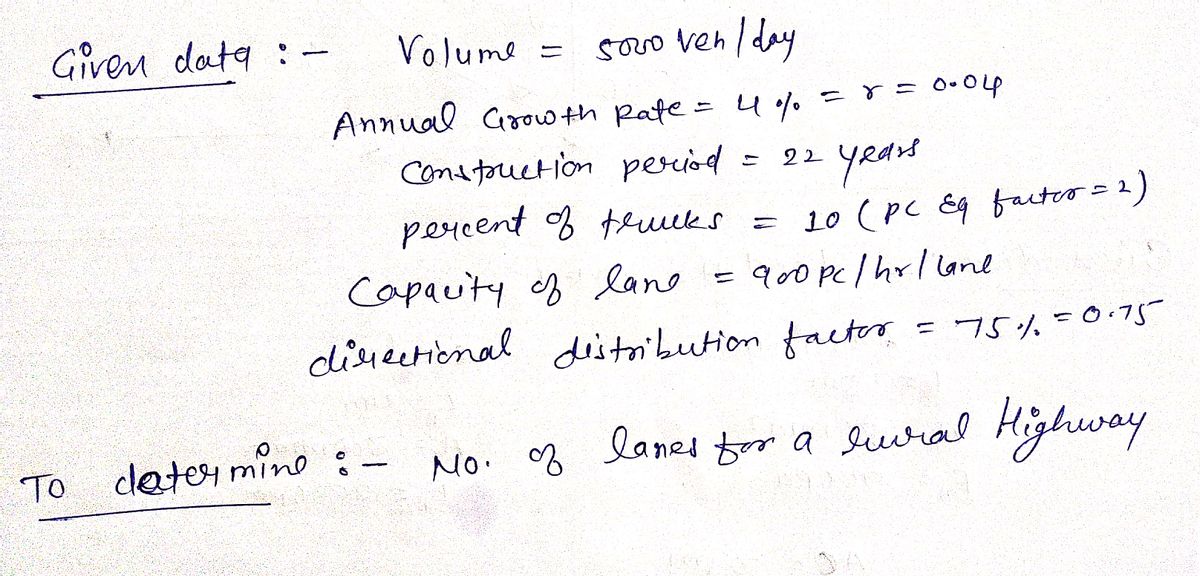 Given data :- Volume = 5000 veh/day
Annual Growth Rate = 4 % = r = 0.04
Construction period = 22 years
percent of trucks = 10 (PC Eq factor = 2)
Capacity of lane = 900 PC/hr/lane
directional distribution factor = 75 % = 0.75
To determine :- No. of lanes for a rural Highway